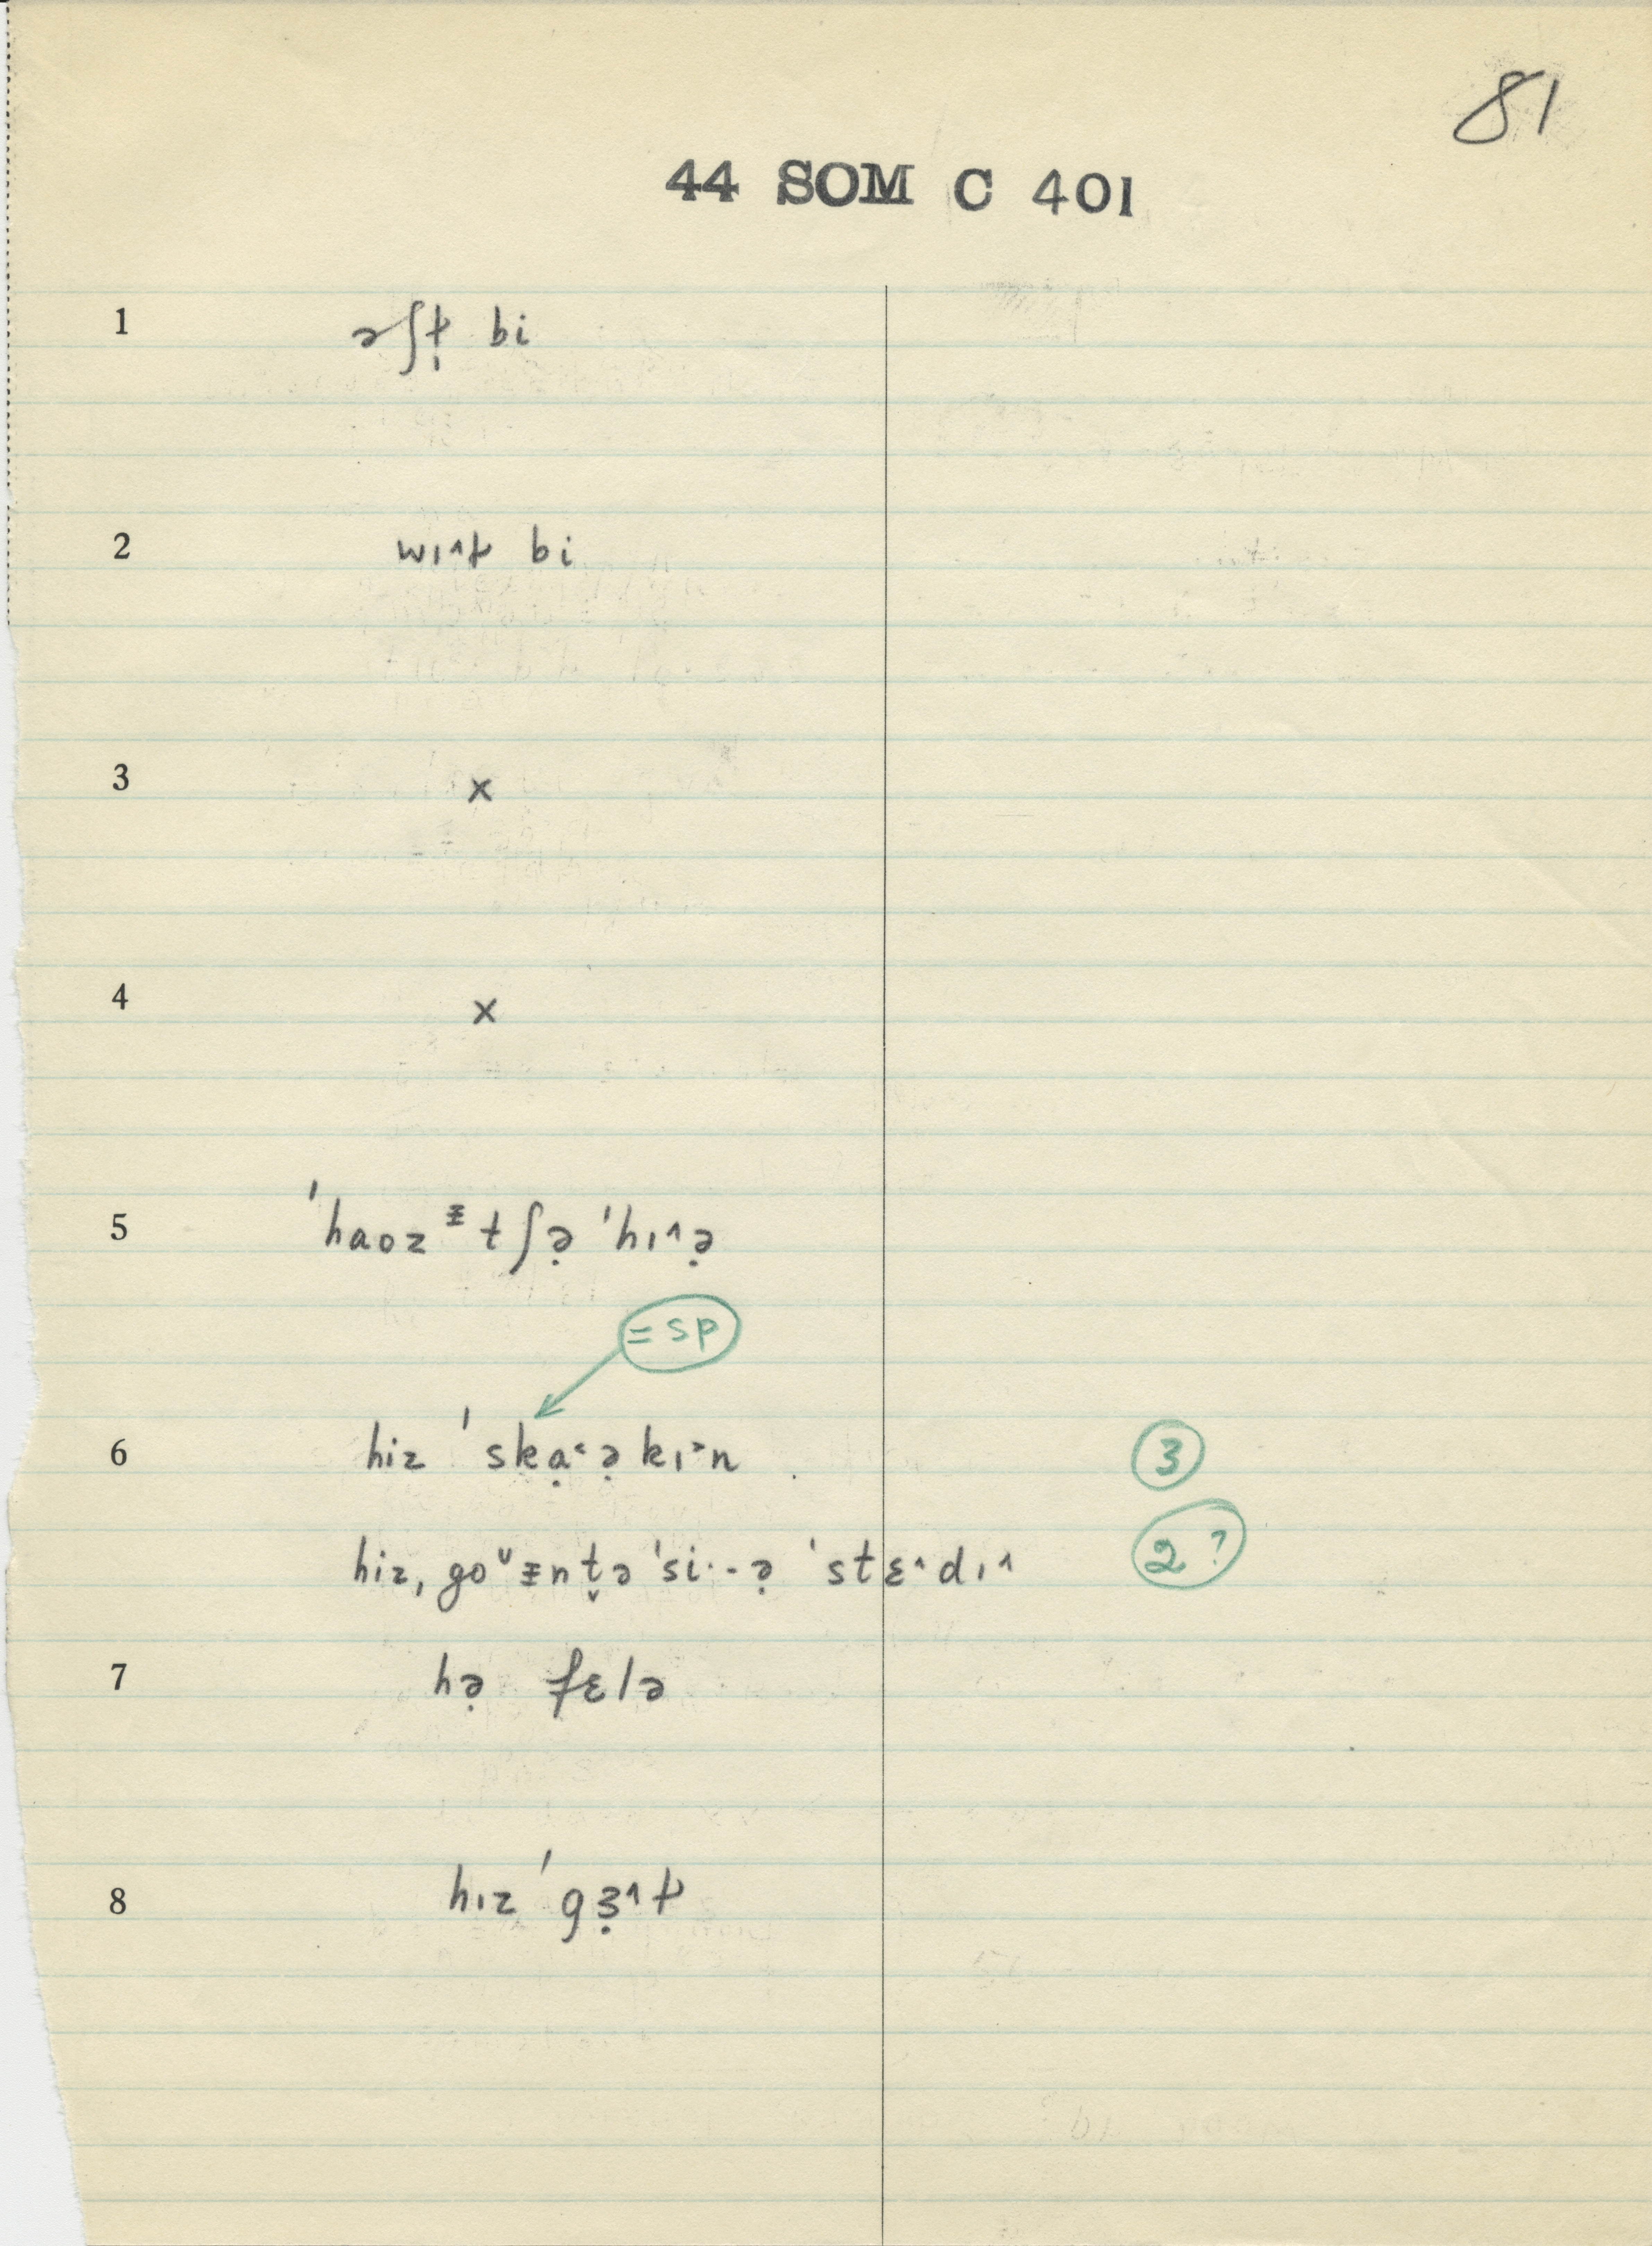 81
44 SOM C 401
1 əʃƚ̩ bi
2 wɪ˄ƚ bi
3 x
4 x
5 ˈhaoz ᵻtʃə̣ ˈhɪ˄ə̣
= sp
6 hiz ˈskạ˂ə̣kɪ˃n 3
hiz, go˅ᵻnt̬ə ˈsi·-ə̣ ˈstɛ˄dɪ˄ 2 ?
7 hə̣ fɛlə
8 hɪz ˈgɜ̣˄ƚ